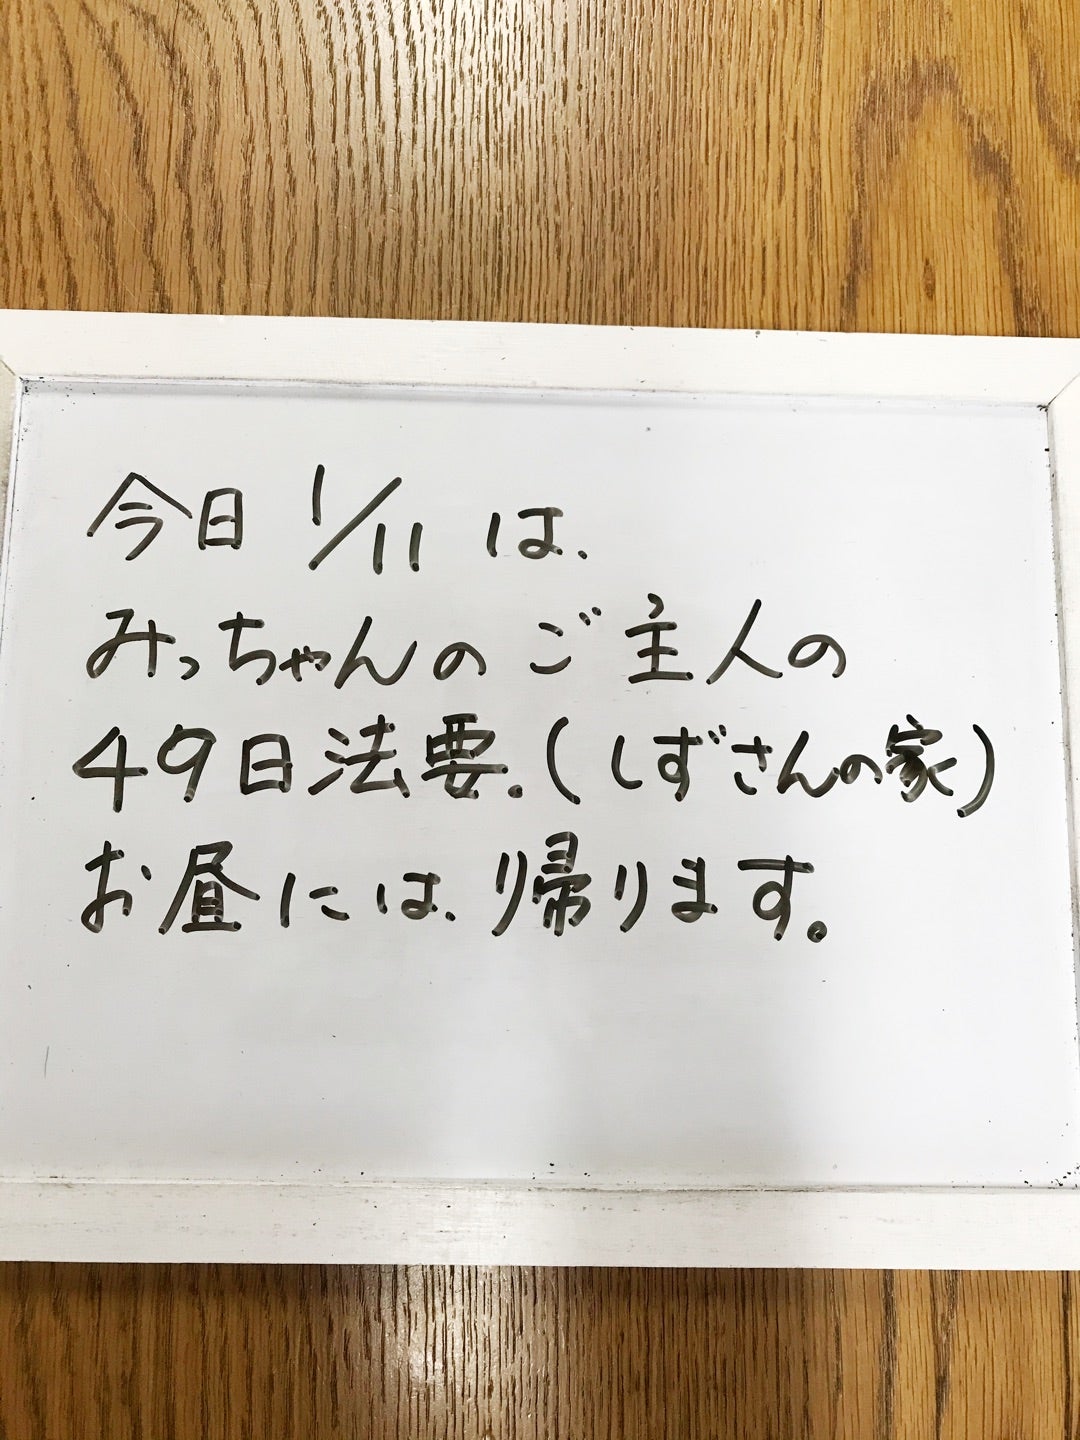 今日 1/11 は、
みっちゃんの ご主人の
49日法要。(しずさんの家)
お昼には、帰ります。